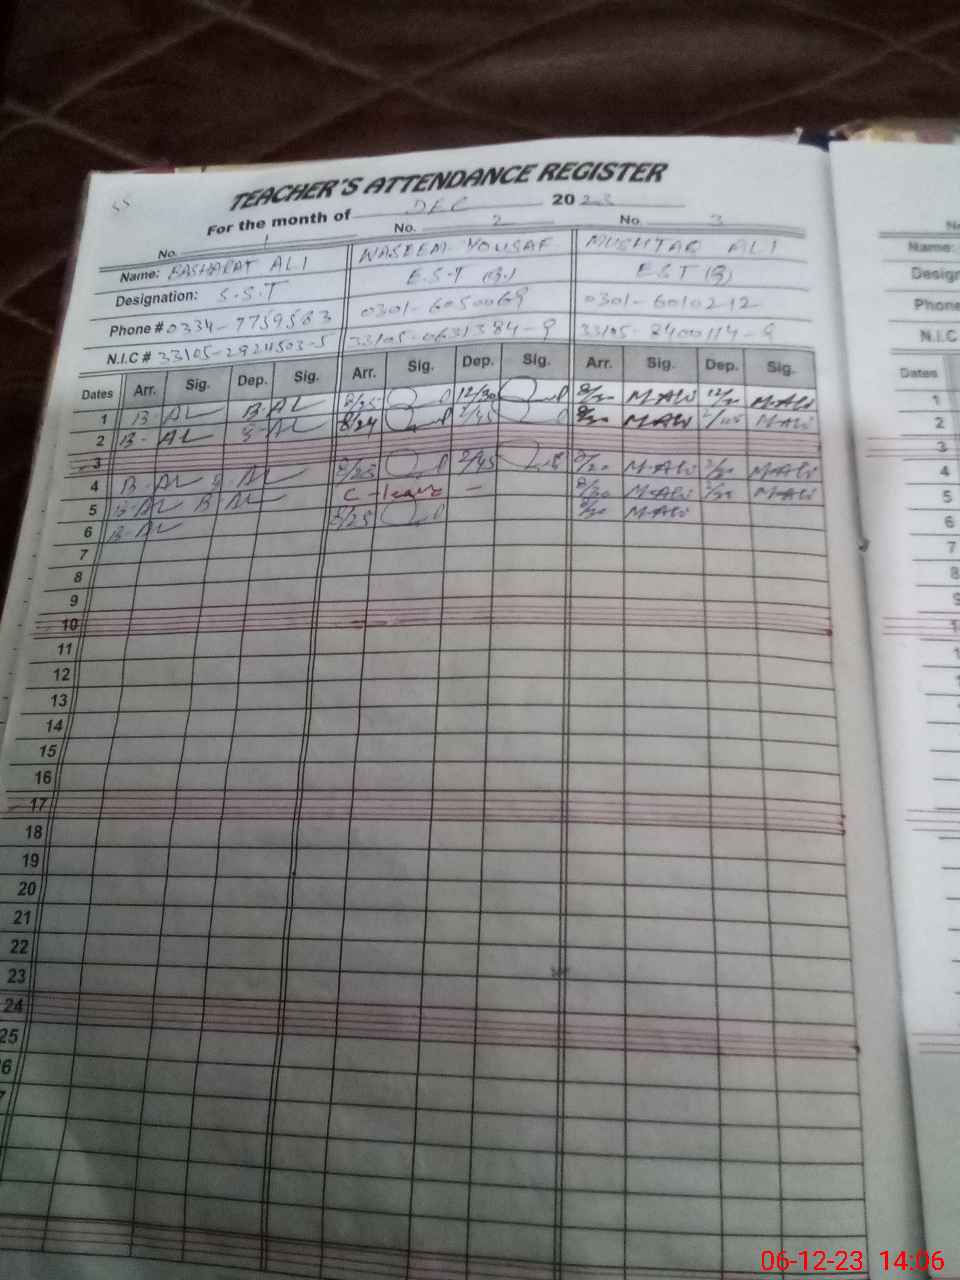 55
TEACHER'S ATTENDANCE REGISTER
For the month of DEC 2023
No. 1 No. 2 No. 3
Name: BASHARAT ALI WASEEM YOUSAF MUSHTAQ ALI
Designation: S.S.T E.S.T E.S.T
Phone # 0334-7759583 0301-6050069 0301-6010212
N.I.C # 33105-2924503-5 33105-0631384-9 33105-8400114-9
Dates Arr. Sig. Dep. Sig. Arr. Sig. Dep. Sig. Arr. Sig. Dep. Sig.
1 B-AL B-AL 8/25 12/30 M-Ali M-Ali
2 B-AL B-AL 8/24 1/45 M-Ali M-Ali
3
4 B-AL B-AL 8/25 2/45 8/20 M-Ali M-Ali
5 B-AL B-AL C-leave - M-Ali M-Ali
6 B-AL 8/25 M-Ali
7
8
9
10
11
12
13
14
15
16
17
18
19
20
21
22
23
24
25
6
7
Name:
Design
Phone
N.I.C
Dates
1
2
3
4
5
6
7
8
9
06-12-23 14:06